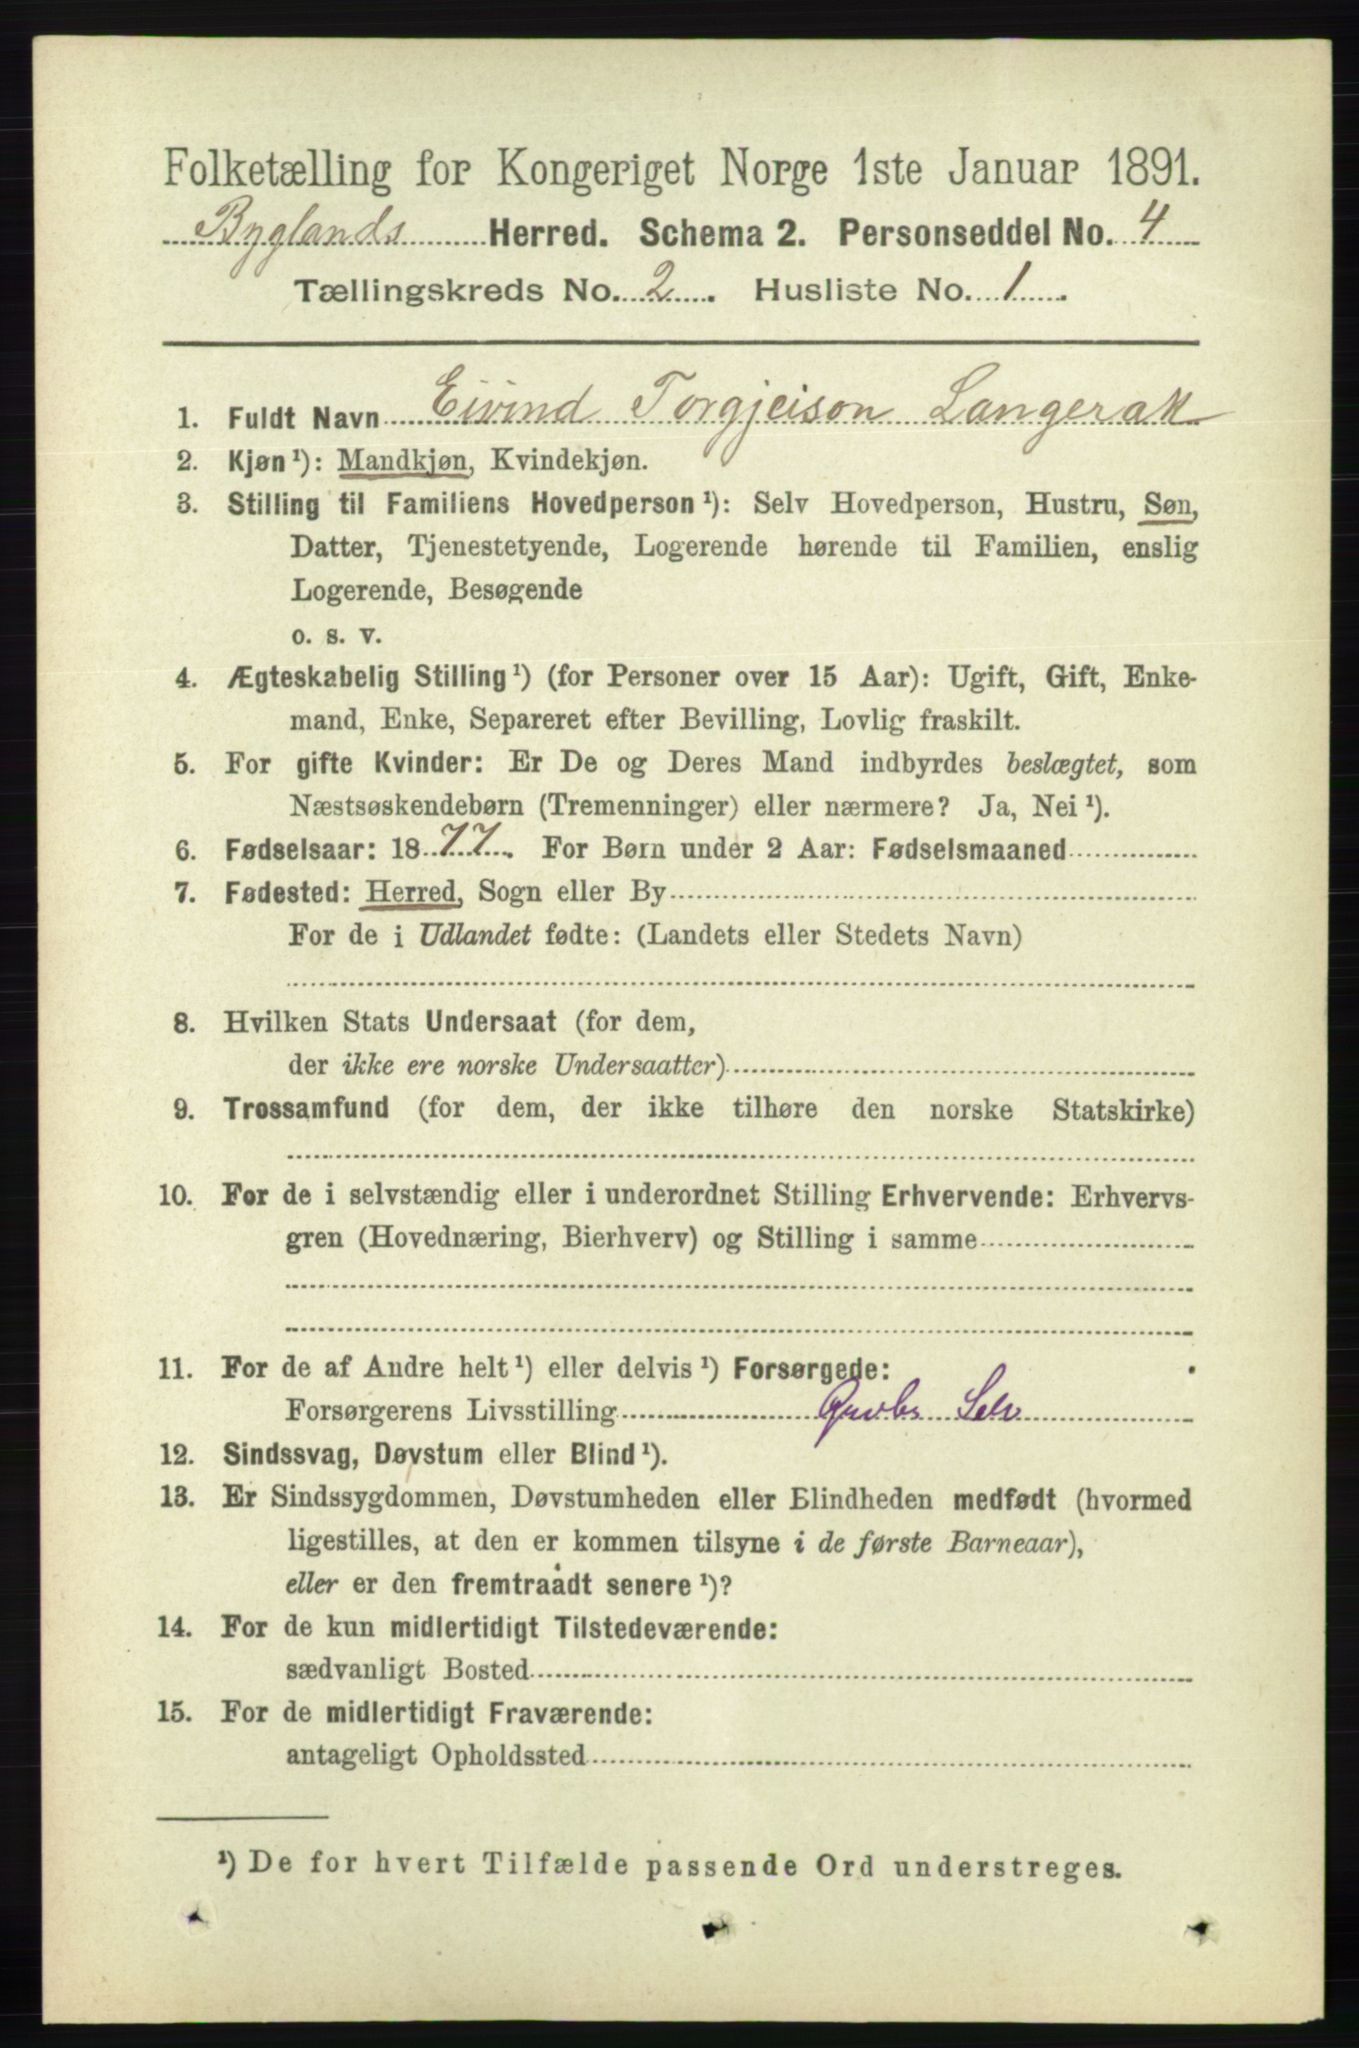 Folketælling for Kongeriget Norge 1ste Januar 1891.
Byglands Herred. Schema 2. Personseddel No. 4
Tællingskreds No. 2. Husliste No. 1.
1. Fuldt Navn Eivind Torgjeison Langerak
2. Kjøn¹): Mandkjøn, Kvindekjøn.
3. Stilling til Familiens Hovedperson¹): Selv Hovedperson, Hustru, Søn,
Datter, Tjenestetyende, Logerende hørende til Familien, enslig
Logerende, Besøgende
o. s. v.
4. Ægteskabelig Stilling¹) (for Personer over 15 Aar): Ugift, Gift, Enke-
mand, Enke, Separeret efter Bevilling, Lovlig fraskilt.
5. For gifte Kvinder: Er De og Deres Mand indbyrdes beslægtet, som
Næstsøskendebørn (Tremenninger) eller nærmere? Ja, Nei¹).
6. Fødselsaar: 1877. For Børn under 2 Aar: Fødselsmaaned
7. Fødested: Herred, Sogn eller By
For de i Udlandet fødte: (Landets eller Stedets Navn)
8. Hvilken Stats Undersaat (for dem,
der ikke ere norske Undersaatter)
9. Trossamfund (for dem, der ikke tilhøre den norske Statskirke)
10. For de i selvstændig eller i underordnet Stilling Erhvervende: Erhvervs-
gren (Hovednæring, Bierhverv) og Stilling i samme
11. For de af Andre helt¹) eller delvis¹) Forsørgede:
Forsørgerens Livsstilling
12. Sindssvag, Døvstum eller Blind¹).
13. Er Sindssygdommen, Døvstumheden eller Blindheden medfødt (hvormed
ligestilles, at den er kommen tilsyne i de første Barneaar),
eller er den fremtraadt senere¹)?
14. For de kun midlertidigt Tilstedeværende:
sædvanligt Bosted
15. For de midlertidigt Fraværende:
antageligt Opholdssted
¹) De for hvert Tilfælde passende Ord understreges.